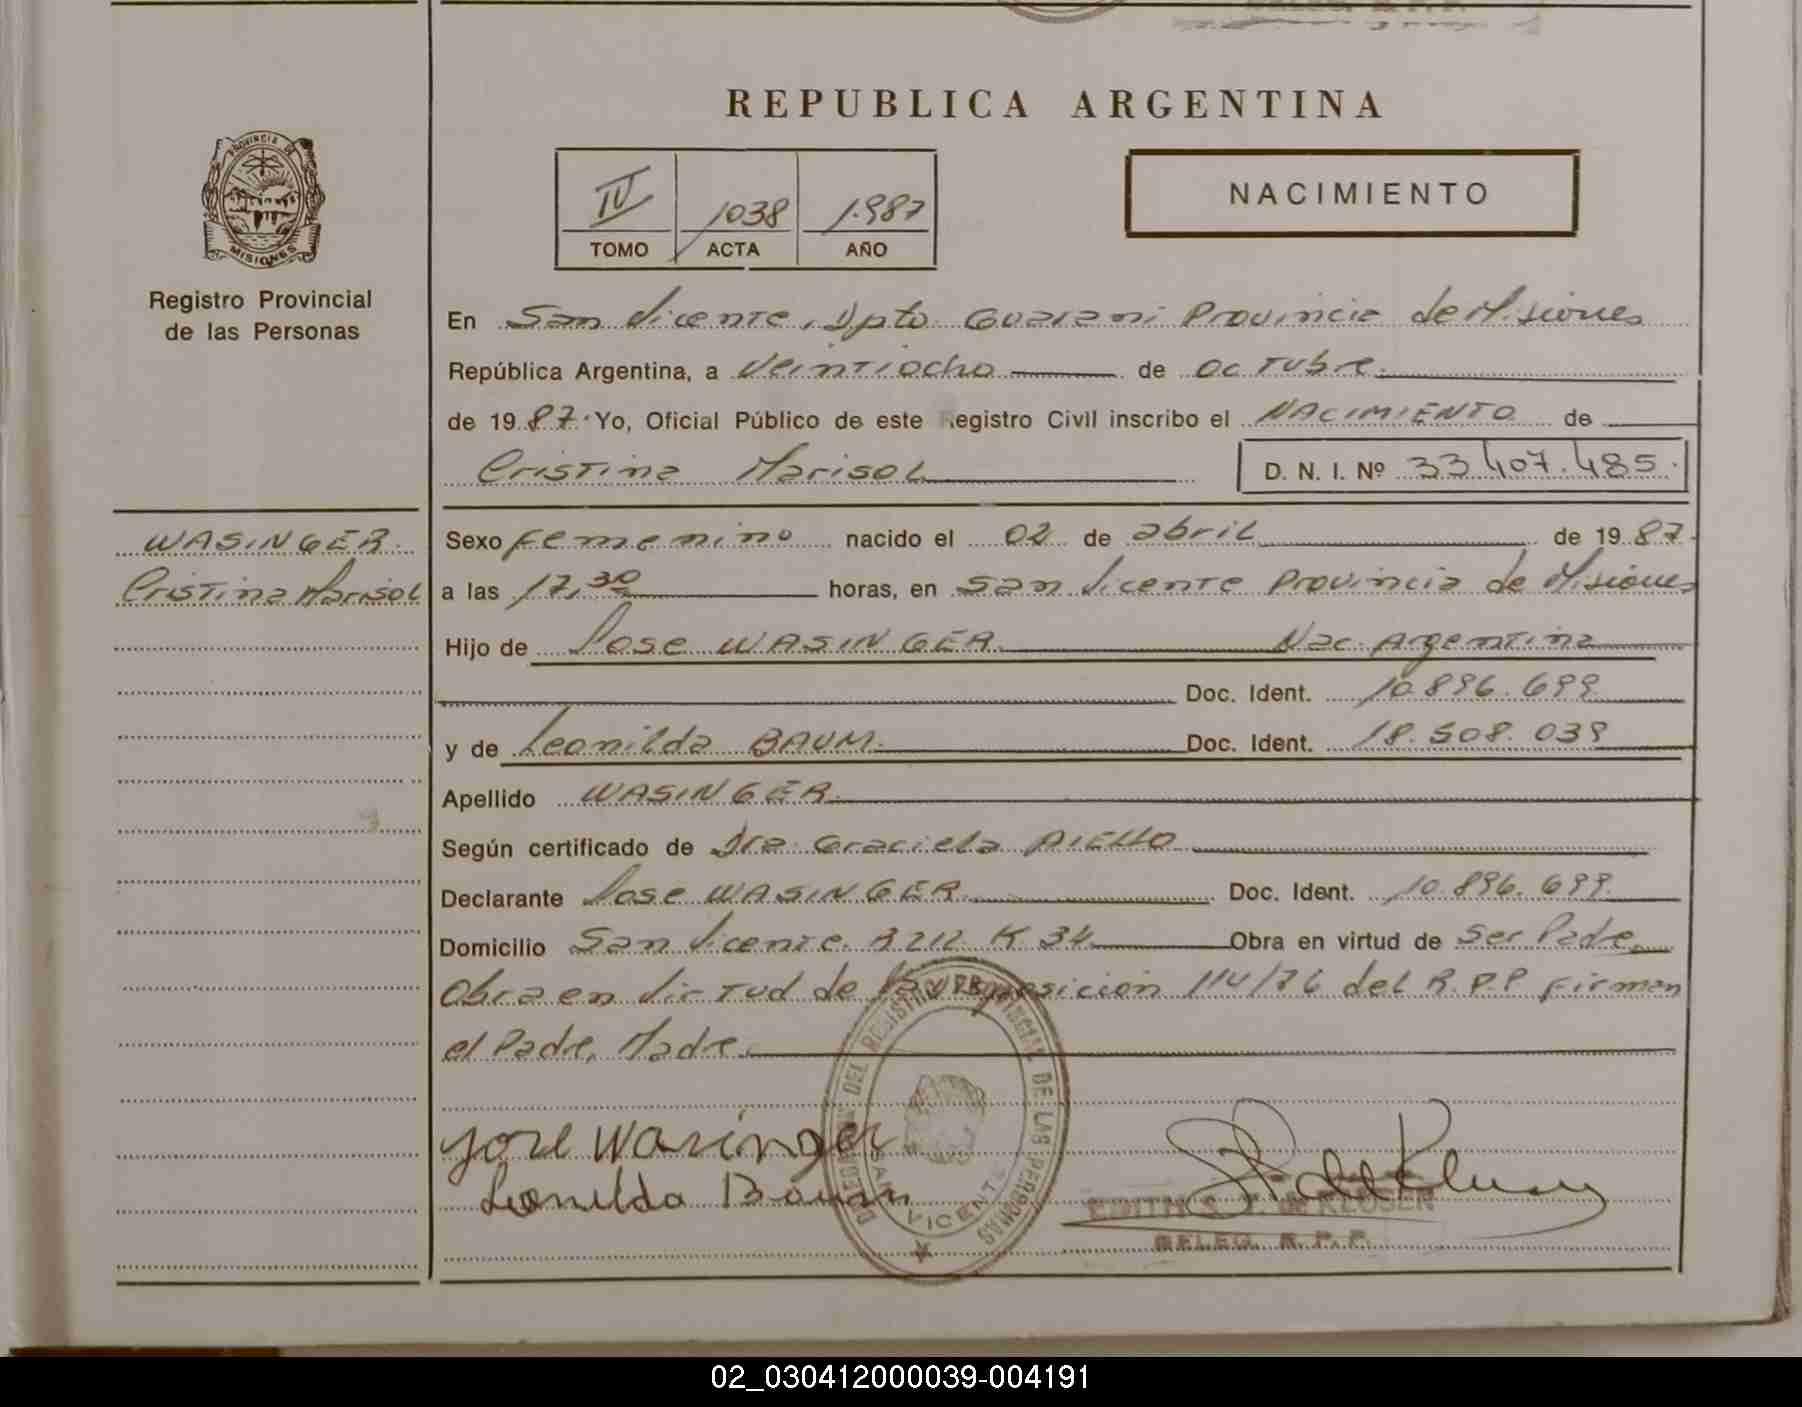 REPUBLICA ARGENTINA
PROVINCIA DE
MISIONES
Registro Provincial
de las Personas
IV 1038 1.987
TOMO ACTA AÑO
NACIMIENTO
En San Vicente, Dpto. Guarani Provincia de Misiones
República Argentina, a Veintiocho de octubre.
de 19 87. Yo, Oficial Público de este Registro Civil inscribo el NACIMIENTO de
Cristina Marisol D. N. I. Nº 33.407.485.
WASINGER
Cristina Marisol
Sexo femenino nacido el 02 de abril de 19 87.
a las 17,30 horas, en San Vicente Provincia de Misiones
Hijo de Jose WASINGER. Nac. Argentina
Doc. Ident. 10.896.699
y de Leonilda BAUM. Doc. Ident. 18.508.039
Apellido WASINGER.
Según certificado de Dra. Graciela AIELLO
Declarante Jose WASINGER. Doc. Ident. 10.896.699.
Domicilio San Vicente. R 212 K 34 Obra en virtud de Ser Padre.
Obra en Virtud de la Disposicion 114/76 del R.P.P firman
el Padre, Madre.
Jose Wasinger
Leonilda Baum
DEL REGISTRO PROVINCIAL DE LAS PERSONAS
SAN VICENTE
EDITH S. F. de KLUSEN
DELEG. R. P. P.
02_030412000039-004191